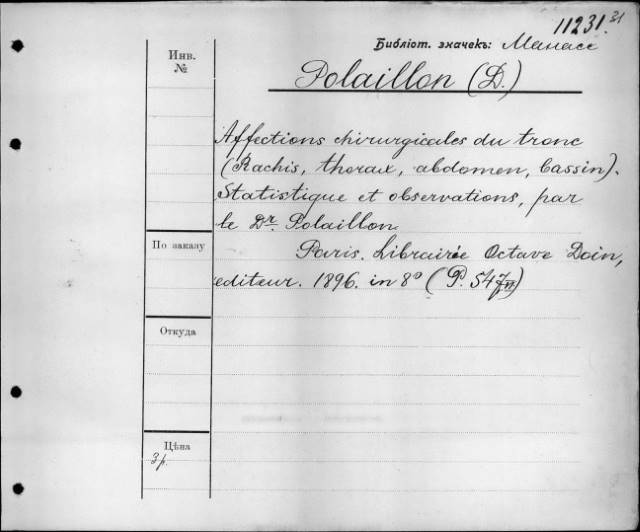 11231.31
Библіот. значекъ: Манасе
Инв.
№
Polaillon (D.)
Affections chirurgicales du tronc
(Rachis, thorax, abdomen, bassin).
Statistique et observations, par
le Dr. Polaillon.
По заказу
Paris. Librairie Octave Doin,
editeur. 1896. in 8° (P. 547
Откуда
Цѣна
3 р.